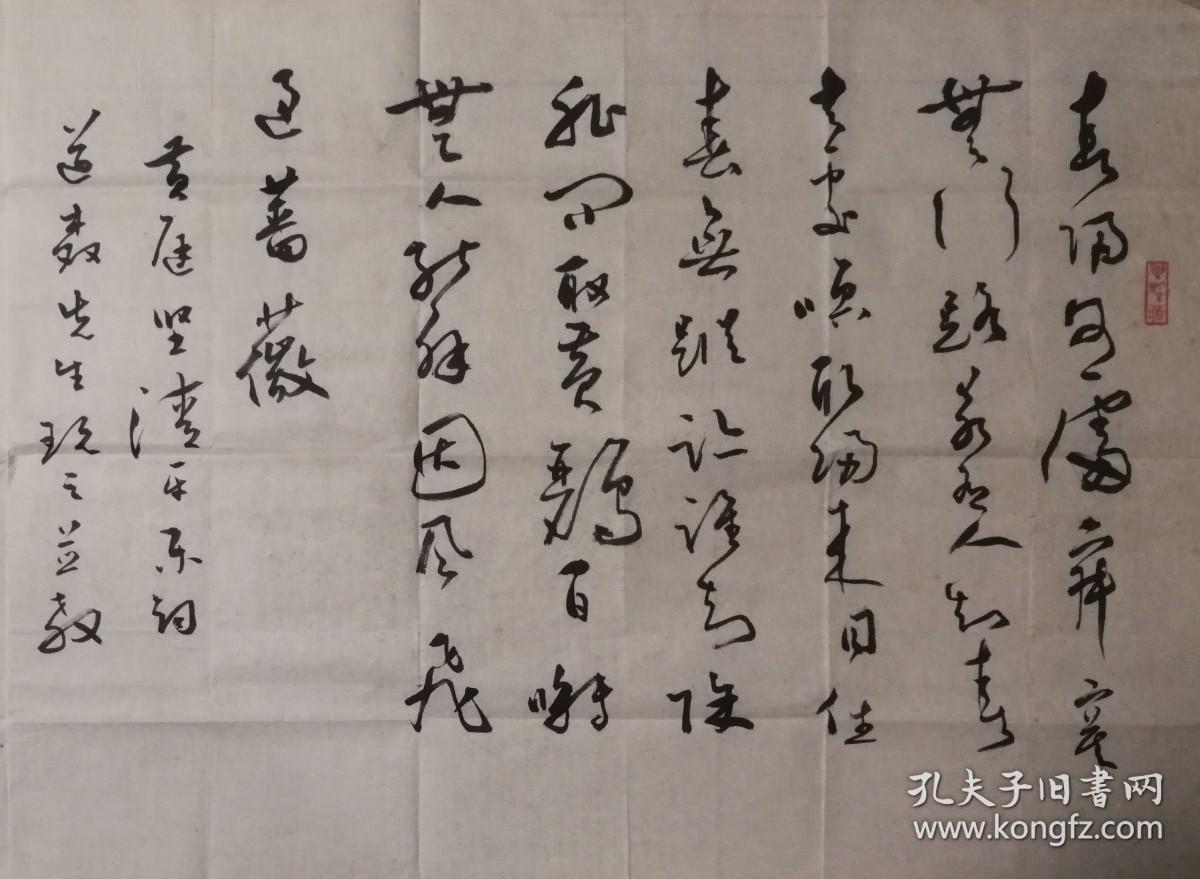 春归何處寂寞
無行路若有人知春
去處唤取归来同住
春無蹤迹誰知除
非问取黄鸝百囀
無人能解因风飛
過薔薇
黄庭坚清平乐词
道先生玩之並教
孔夫子旧书网
www.kongfz.com